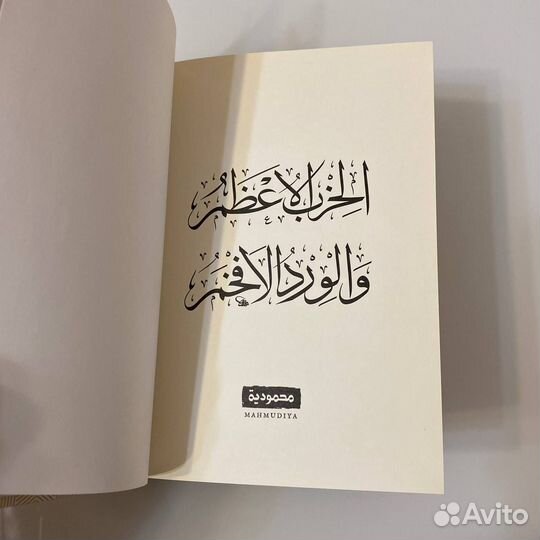 الحِزْبُ الْاَعْظَمُ
وَالْوِرْدُ الْاَفْخَمُ
محمودية
MAHMUDIYA
Avito